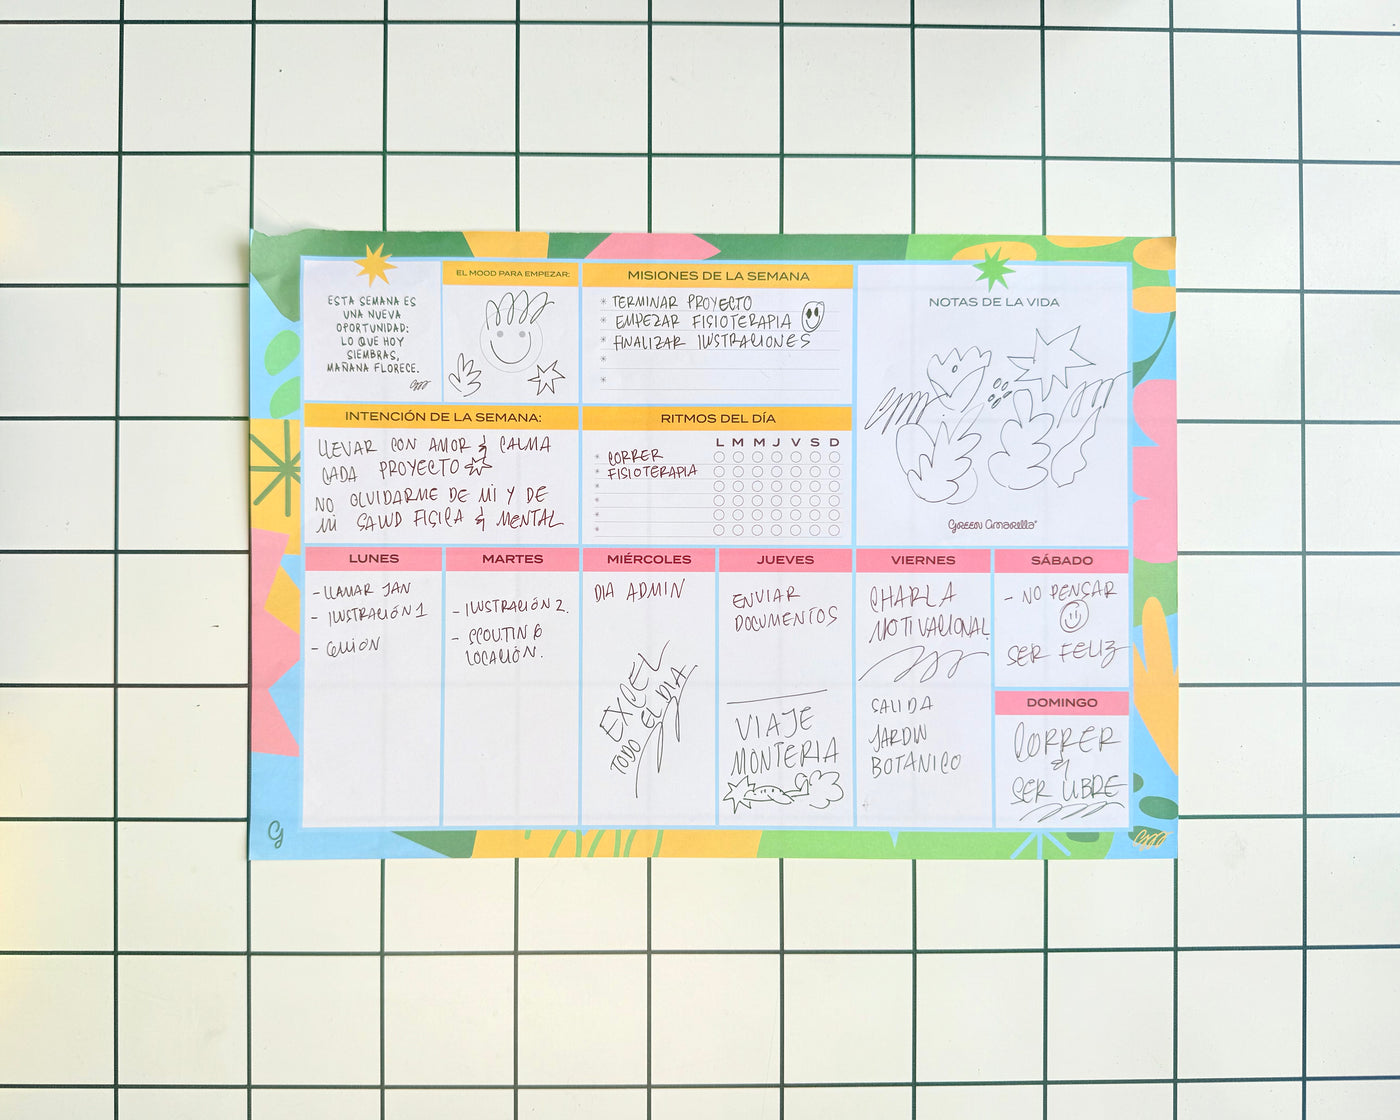 ESTA SEMANA ES
UNA NUEVA
OPORTUNIDAD:
LO QUE HOY
SIEMBRAS,
MAÑANA FLORECE.
EL MOOD PARA EMPEZAR:
MISIONES DE LA SEMANA
* TERMINAR PROYECTO
* EMPEZAR FISIOTERAPIA
* FINALIZAR ILUSTRACIONES
*
*
NOTAS DE LA VIDA
GREEN Amarella
INTENCIÓN DE LA SEMANA:
LLEVAR CON AMOR & CALMA
CADA PROYECTO
NO OLVIDARME DE MI Y DE
MI SALUD FISICA & MENTAL
RITMOS DEL DÍA
L M M J V S D
* CORRER
* FISIOTERAPIA
*
*
*
*
LUNES
- LLAMAR JAN
- ILUSTRACIÓN 1
- GUIÓN
MARTES
- ILUSTRACIÓN 2.
- SCOUTING
LOCACIÓN.
MIÉRCOLES
DIA ADMIN
EXCEL
TODO EL DIA
JUEVES
ENVIAR
DOCUMENTOS
VIAJE
MONTERIA
VIERNES
CHARLA
MOTIVACIONAL
SALIDA
JARDIN
BOTANICO
SÁBADO
- NO PENSAR
SER FELIZ
DOMINGO
CORRER
&
SER LIBRE
G